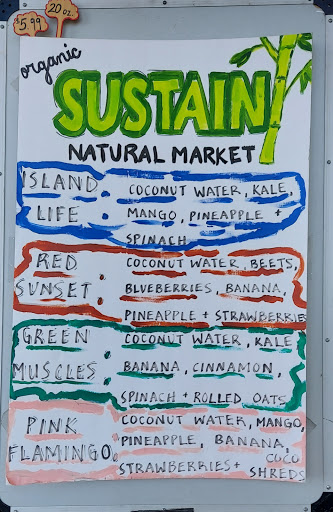 $5.99
20 oz.
organic
SUSTAIN
NATURAL MARKET
ISLAND : COCONUT WATER, KALE,
LIFE MANGO, PINEAPPLE +
SPINACH
RED : COCONUT WATER, BEETS,
SUNSET BLUEBERRIES, BANANA,
PINEAPPLE + STRAWBERRIES
GREEN : COCONUT WATER, KALE
MUSCLES BANANA, CINNAMON,
SPINACH + ROLLED OATS
PINK COCONUT WATER, MANGO,
FLAMINGO: PINEAPPLE, BANANA,
STRAWBERRIES + COCO
SHREDS